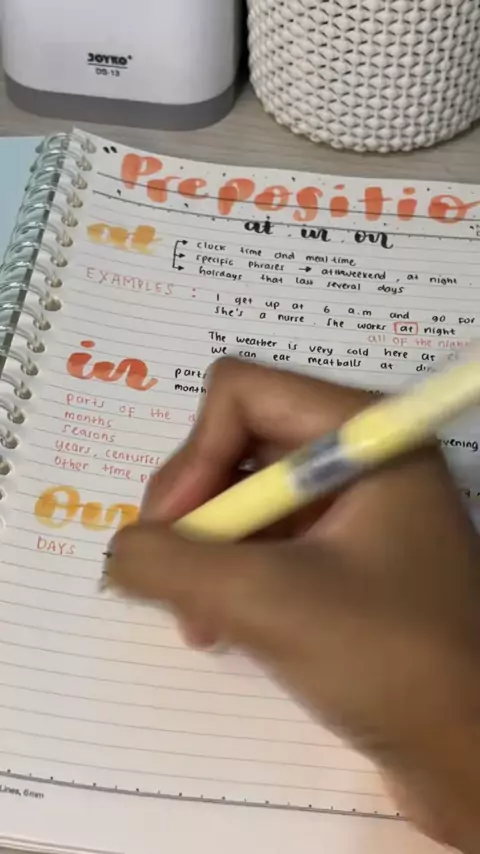 JOYKO
DS-13
"Prepositio
at in on
at
clock time and meal time
specific phrases → at weekend, at night.
holidays that last several days
EXAMPLES :
I get up at 6 a.m and go for
She's a nurse. She works at night
all of the night
The weather is very cold here at
we can eat meatballs at
in
parts
month
parts of the
months
seasons
years, centuries
other time
evening
On
DAYS
Lines, 6mm